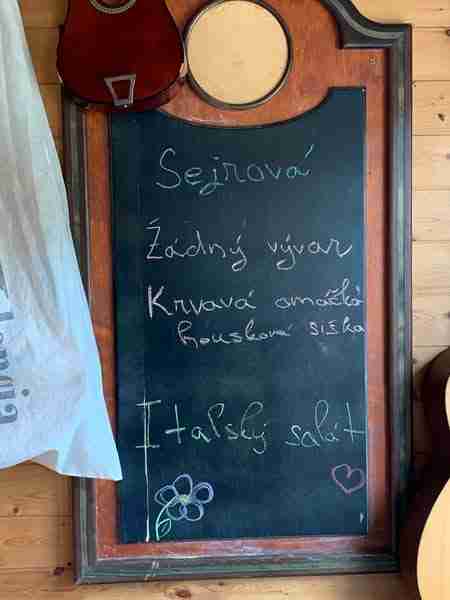 Sejrová
Žádný vývar
Krvavá omáčka
housková siška
Itaľský salát